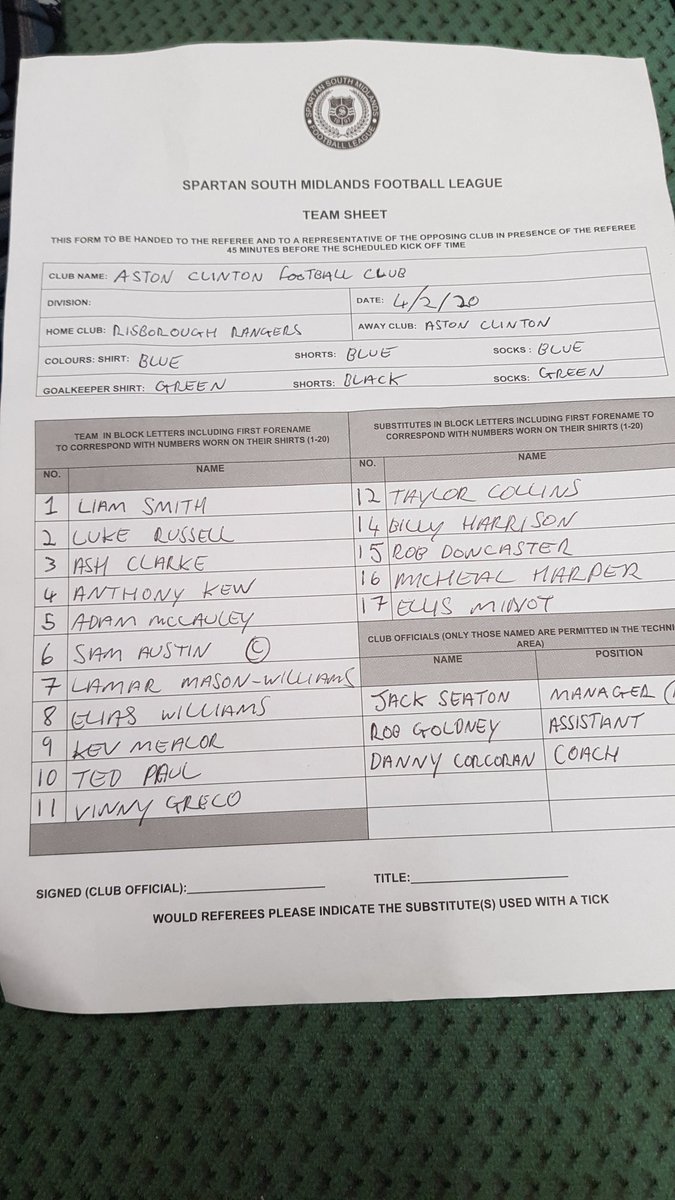 SPARTAN SOUTH MIDLANDS
FOOTBALL LEAGUE
SPARTAN SOUTH MIDLANDS FOOTBALL LEAGUE
TEAM SHEET
THIS FORM TO BE HANDED TO THE REFEREE AND TO A REPRESENTATIVE OF THE OPPOSING CLUB IN PRESENCE OF THE REFEREE
45 MINUTES BEFORE THE SCHEDULED KICK OFF TIME
CLUB NAME: ASTON CLINTON FOOTBALL CLUB
DIVISION: DATE: 4/2/20
HOME CLUB: RISBOROUGH RANGERS AWAY CLUB: ASTON CLINTON
COLOURS: SHIRT: BLUE SHORTS: BLUE SOCKS: BLUE
GOALKEEPER SHIRT: GREEN SHORTS: BLACK SOCKS: GREEN
TEAM IN BLOCK LETTERS INCLUDING FIRST FORENAME
TO CORRESPOND WITH NUMBERS WORN ON THEIR SHIRTS (1-20)
NO. NAME
1 LIAM SMITH
2 LUKE RUSSELL
3 ASH CLARKE
4 ANTHONY KEW
5 ADAM MCCAULEY
6 SAM AUSTIN ©
7 LAMAR MASON-WILLIAMS
8 ELIAS WILLIAMS
9 KEV MEALOR
10 TED PAUL
11 VINNY GRECO
SUBSTITUTES IN BLOCK LETTERS INCLUDING FIRST FORENAME TO
CORRESPOND WITH NUMBERS WORN ON THEIR SHIRTS (1-20)
NO. NAME
12 TAYLOR COLLINS
14 BILLY HARRISON
15 ROB DONCASTER
16 MICHEAL HARPER
17 ELLIS MINOT
CLUB OFFICIALS (ONLY THOSE NAMED ARE PERMITTED IN THE TECHNI
AREA)
NAME POSITION
JACK SEATON MANAGER
ROB GOLDNEY ASSISTANT
DANNY CORCORAN COACH
SIGNED (CLUB OFFICIAL): TITLE:
WOULD REFEREES PLEASE INDICATE THE SUBSTITUTE(S) USED WITH A TICK